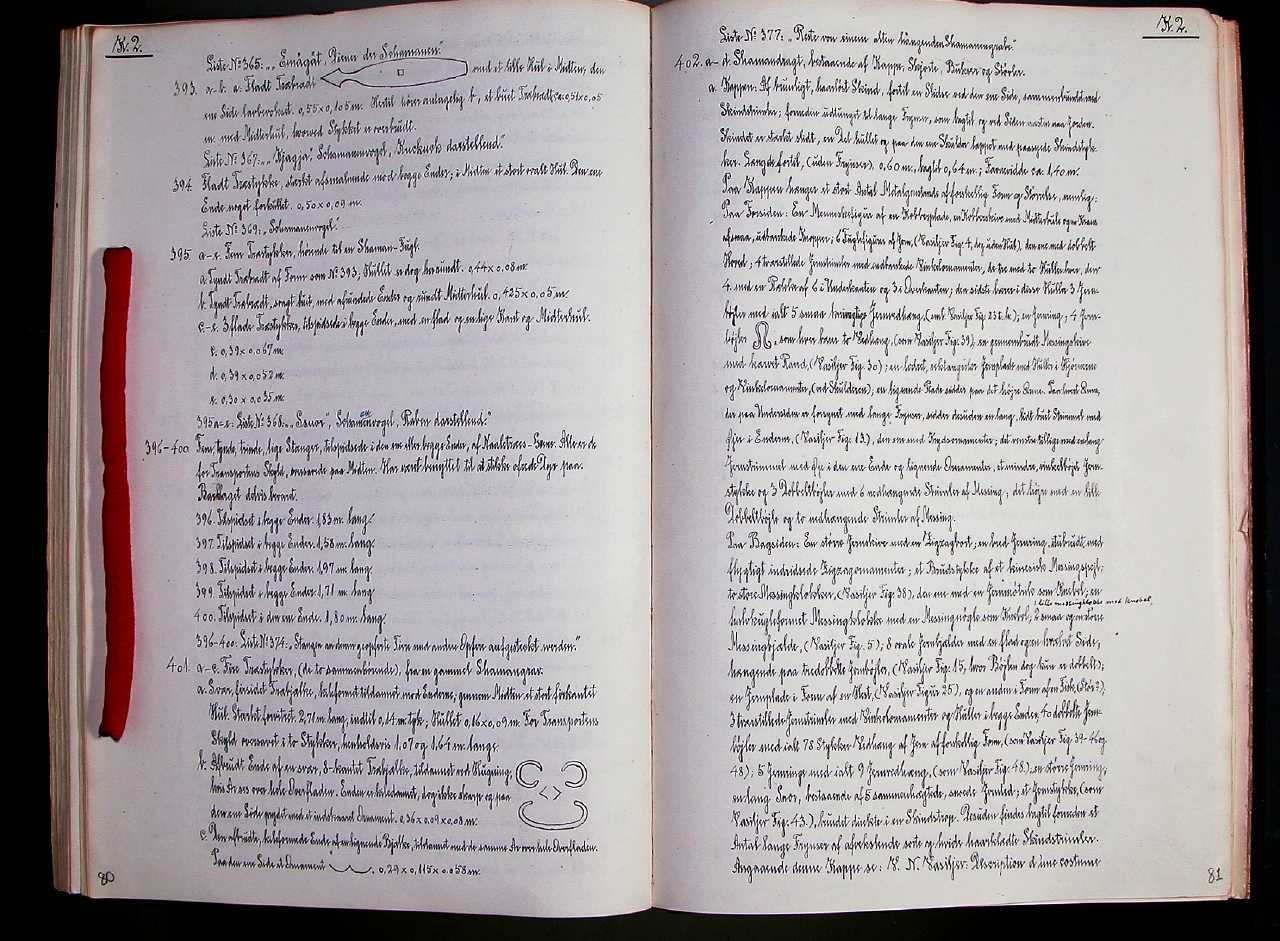 K. 2.
Liste Nº 365: „Einägät, Diener des Schamanen."
393. a-b. a. Fladt Træbrædt med et lille Hul i Midten, den
ene Side barberhvelt. 0,55 x 0,105 m. Hertil hører antagelig b., et buet Træbrædt, ca. 0,51 x 0,05
m med Midterhul, hvorved Stykket er overbrudt.
Liste Nº 367: „Kjagja", Schamanenvogel, Kuckuck darstellend."
394. Fladt Træstykke, stærkt afsmalnende mod begge Ender; i Midten et stort ovalt Hul. Den ene
Ende noget forkullet. 0,50 x 0,09 m.
Liste Nº 369: „Schamanenvogel."
395. a-e. Fem Træstykker, hørende til en Shaman-Fugl.
a. Tyndt Træbrædt af Form som Nº 393, Hullet er dog her rundt. 0,44 x 0,08 m.
b. Tyndt Træbrædt, svagt buet, med afrundede Ender og rundt Midterhul. 0,425 x 0,05 m.
c-e. 3 flade Træstykker, tilspidsede i begge Ender, med en flad og en lige Kant og Midterhul.
c. 0,39 x 0,067 m.
d. 0,39 x 0,052 m.
e. 0,30 x 0,035 m.
395 a-e. Liste Nº 368: „Suor", Schamanenvogel, Raben darstellend."
396-400. Fem, tynde, trinde, lige Stænger, tilspidsede i den ene eller begge Ender, af Naaletræes-Grene. Alle er de
for Transportens Skyld, overskaaret paa Midten. Har været benyttet til at stikke ofrede Dyr paa.
Barklaget delvis bevaret.
396. Tilspidset i begge Ender. 1,83 m. lang.
397. Tilspidset i begge Ender. 1,58 m. lang.
398. Tilspidset i begge Ender. 1,97 m. lang.
399. Tilspidset i begge Ender. 1,71 m. lang.
400. Tilspidset i den ene Ende. 1,80 m. lang.
396-400. Liste Nº 374: „Stangen an denen geopferte Tiere und andere Opfern aufgesteckt werden."
401. a-e. Fire Træstykker, (de to sammenhørende), fra en gammel Shamangrav.
a. Svær, firsidet Træbjælke, kileformet tildannet mod Enderne; gennem Midten et stort firkantet
Hul. Stærkt forvitret. 2,71 m. lang, indtil 0,14 m. tyk; Hullet 0,16 x 0,09 m. For Transportens
Skyld oversavet i to Stykker, henholdsvis 1,07 og 1,64 m. lange.
b. Afbrudt Ende af en svær, 8-kantet Træbjælke, tildannet ved Hugning,
hvis Ar ses over hele Overfladen. Enden er kiledannet, dog ikke skarp og paa
dens ene Side prydet med et indskaaret Ornament. 0,36 x 0,09 x 0,08 m.
c. Den afbrudte, kileformede Ende af en lignende Bjælke, tildannet med de samme Ar over hele Overfladen.
Paa den ene Side et Ornament . 0,29 x 0,115 x 0,058 m.
80
K. 2.
Liste Nº 377: „Reste von einem alten hängenden Schamanengrabe."
402. a-d. Shamandragt, bestaaende af Kappe, Skjorte, Bukser og Støvler.
a. Kappen. Af brunligt, haarløst Skind, fortil en Slidse ved den ene Side, sammenbundet med
Skindstrimler; forneden udtunget til lange Frynser, som bagtil og ved Siden næsten naa Jorden.
Skindet er stærkt slidt, en Del hullet og paa den ene Skulder lappet med paasyede Skindstyk-
ker. Længde fortil, (uden Frynser), 0,60 m., bagtil 0,64 m.; Favnevidde ca. 1,40 m.
Paa Kappen hænger et stort Antal Metalgenstande af forskellig Form og Størrelse, nemlig:
Paa Forsiden: En Menneskefigur af en Kobberplade, en Kobberskive med Midterhul og en Krans
af smaa, udbankede Knopper; 6 Fuglefigurer af Jern, (Vasiljev Fig. 4, dog uden Hul), den ene med dobbelt
Hoved; 4 tværstillede Jernstrimler med indhuggede Vinkelornamenter, de tre med to Huller hver, den
4. med en Række af 6 i Underkanten og 3 i Overkanten; den sidste bærer i disse Huller 3 Jern-
bøjler med ialt 5 smaa Jernvedhæng, (smlg. Vasiljev Fig. 23 & 42); en Jernring; 4 Jern-
bøjler , som hver bærer to Vedhæng, (som Vasiljev Fig. 39); en gennembrudt Messingskive
med hævet Rand, (Vasiljev Fig. 30); en lodret, rektangulær Jernplade med Huller i Hjørnerne
og Vinkelornamenter, (ved Skulderen); en lignende Plade sidder paa det højre Ærme. Paa hvert Ærme,
der paa Undersiden er forsynet med lange Frynser, sidder desuden en lang, lidt buet Stimmel med
Øje i Enderne, (Vasiljev Fig. 13), den ene med Krydsornamenter; det venstre tillige med en lang
Jernstrimmel med Øje i den ene Ende og lignende Ornamenter, et mindre, vinkelbøjet Jern-
stykke og 3 Dobbeltbøjler med 6 nedhængende Strimler af Messing; det højre med en lille
Dobbeltbøjle og to nedhængende Strimler af Messing.
Paa Bagsiden: En større Jernskive med en Zigzagbort; en bred Jernring, udbrudt, med
flygtigt indridsede Zigzagornamenter; et Brudstykke af et kinesisk Messingspejl;
to store Messingklokker, (Vasiljev Fig. 38), den ene med en Jernnøgle som Knebel; en
halvkugleformet Messingklokke med en Messingnøgle som Knebel, 1 lille messingklokke med Knebel, 2 smaa og en større
Messingbjælde, (Vasiljev Fig. 5); 8 ovale Jernbjælder med en flad og en hvælvet Side,
hængende paa tredobbelte Jernbøjler, (Vasiljev Fig. 15, hvor Bøjlen dog kun er dobbelt);
en Jernplade i Form af en Hat, (Vasiljev Figur 25), og en anden i Form af en Fisk, (Stør?);
3 tværstillede Jernstrimler med Vinkelornamenter og Huller i begge Ender, 40 dobbelte Jern-
bøjler med ialt 78 Stykker Vedhæng af Jern af forskellig Form, (som Vasiljev Fig. 39-46 og
48); 5 Jernringe med ialt 9 Jernvedhæng, (som Vasiljev Fig. 48); en større Jernring;
en lang Snor, bestaaende af 5 sammenhægtede, snoede Jernled; et Jernstykke, (som
Vasiljev Fig. 43), bundet direkte i en Skindstrop. Desuden findes bagtil forneden et
Antal lange Frynser af afvekslende sorte og hvide haarklædte Skindstrimler.
Angaaende denne Kappe se: V. N. Vasiljev: Description d'une costume
81